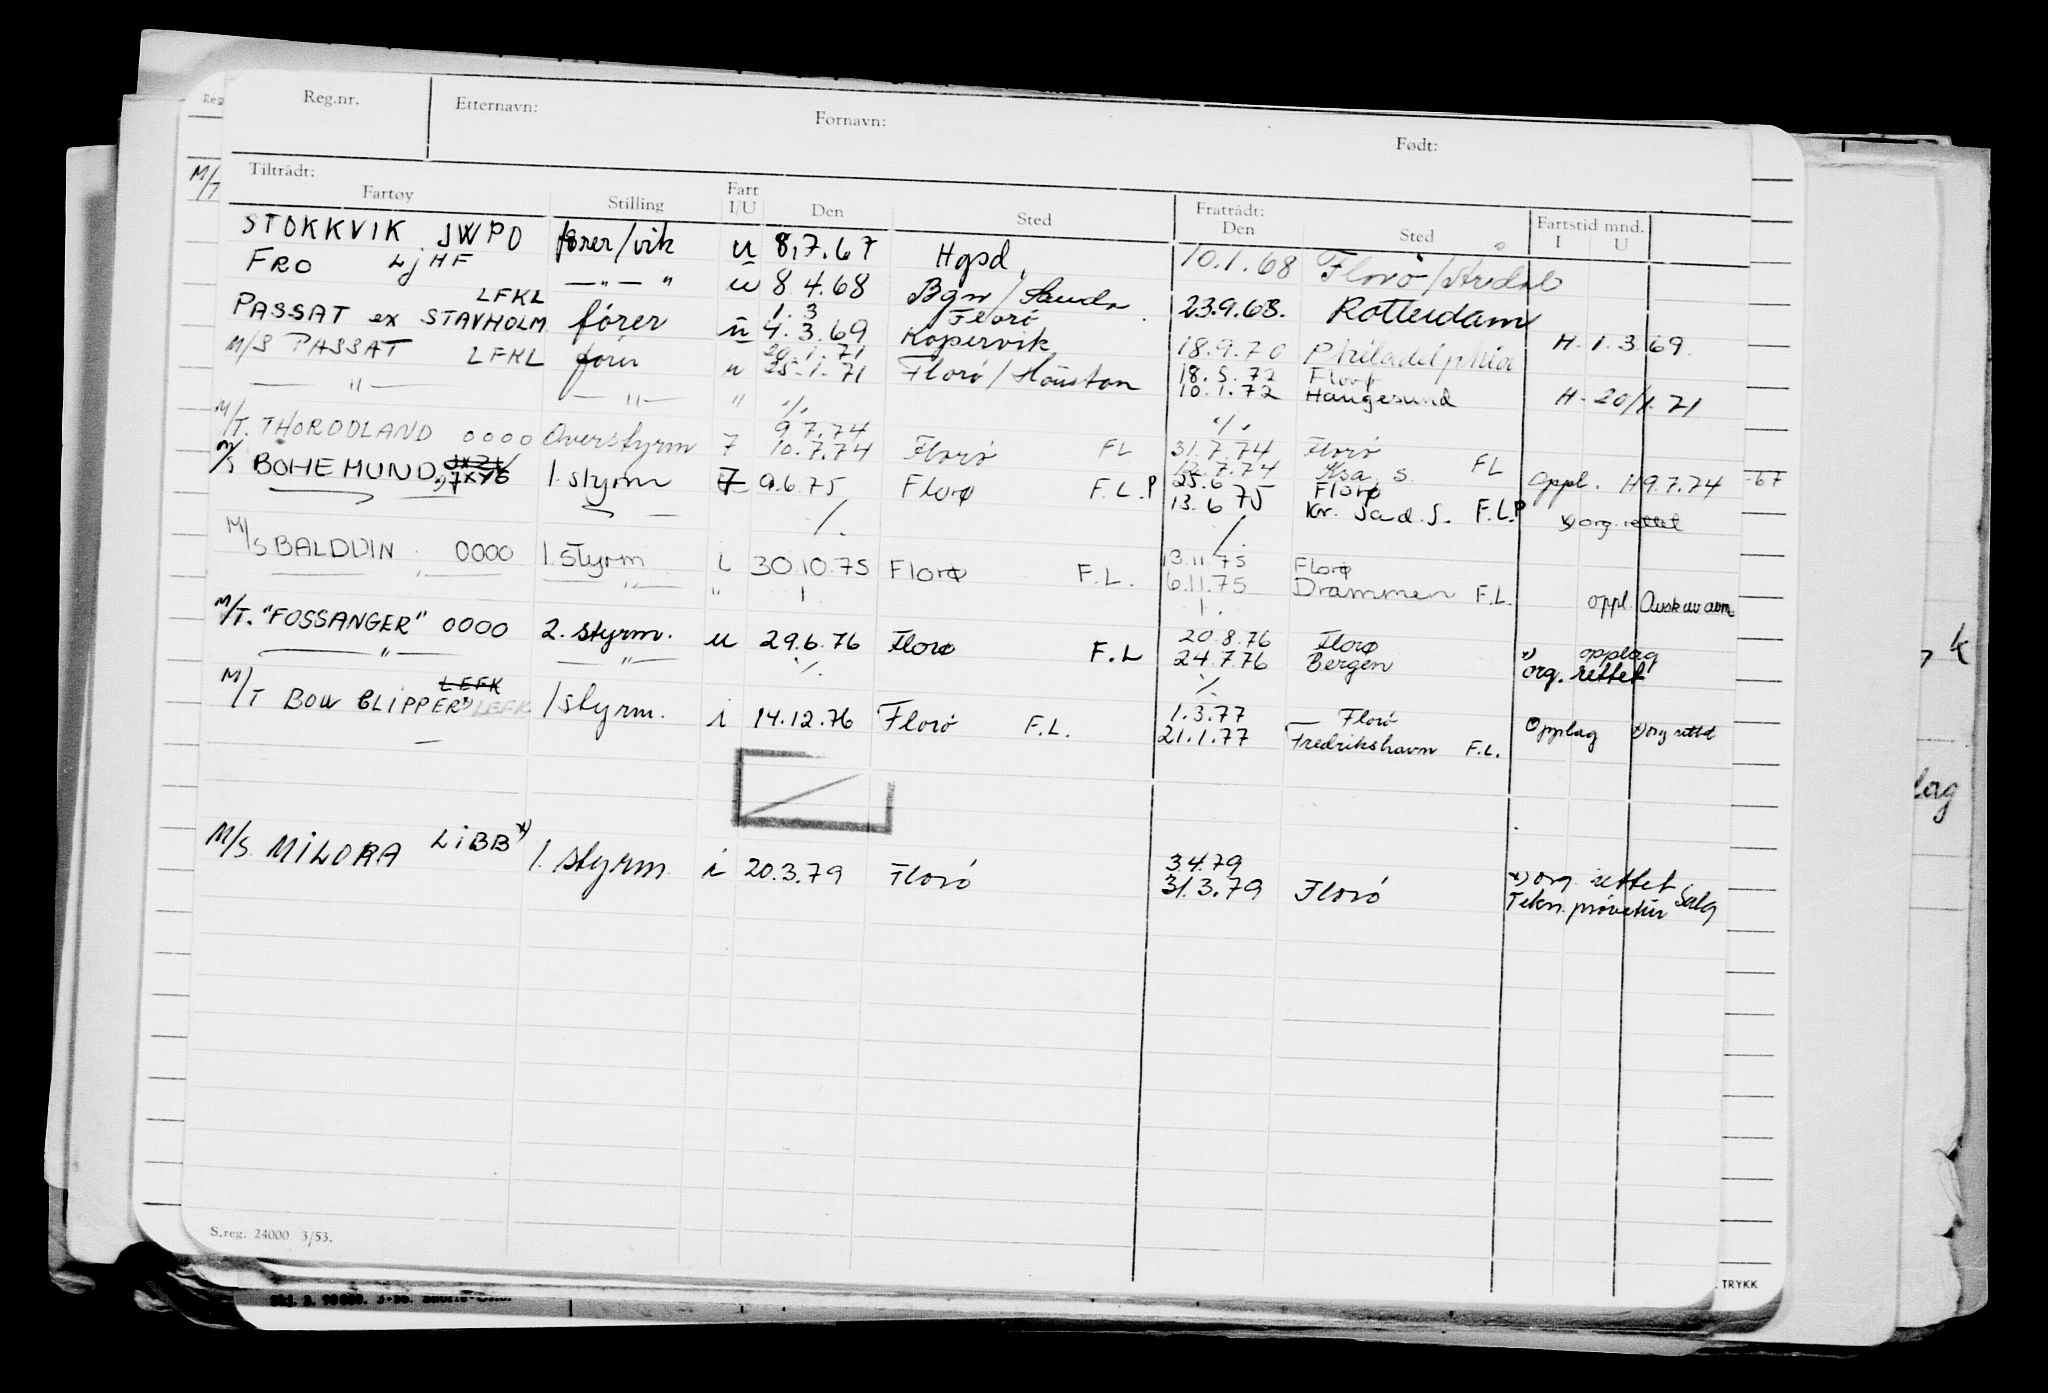 Reg.nr. Etternavn: Fornavn: Født:
Tiltrådt: Fratrådt:
Fartøy Stilling Fart I/U Den Sted Den Sted Fartstid mnd. I U
STOKKVIK JWPD fører/vik u 8.7.67 Hgsd. 10.1.68 Florø/Årdal
FRO LJHF — " — " u 8 4.68 Bgn/Sauda 23.9.68. Rotterdam
LFKL 1.3 Florø
PASSAT ex STAVHOLM fører u 4.3.69 Kopervik 18.9.70 Philadelphia H. 1.3 69.
20.1.71 18.5.72 Florø
M/S PASSAT LFKL fører u 25.1.71 Florø/Houston 10.1.72 Haugesund H- 20/1.71
— " — — " — " ./. ./.
9.7.74 31.7.74 Florø
M/T. THORODLAND 0000 Overstyrm 7 10.7.74 Florø FL 12.7.74 Ksa. S. FL oppl. H9.7.74 -67
25.6 Florø
M/S BOHEMUND 1. styrm 7 9.6.75 Florø F.L.P 13.6 75 Kr. Sad. S. F.L.P x) org. rettet
./. ./.
13.11 75 Florø
M/S BALDUIN 0000 1. styrm i 30.10.75 Florø F.L. 6.11.75 Drammen F.L. oppl.
— " — — " — "
20.8.76 Florø opplag
M/T. "FOSSANGER" 0000 2. styrm. u 29.6.76 Florø F.L 24.7.76 Bergen x) org. rettet
— " — — " — ./. ./.
LEFK 1.3.77 Florø
M/T BOW CLIPPER x) LEFK 1 styrm. i 14.12.76 Florø F.L. 21.1.77 Fredrikshavn F.L. Opplag x) org rettet
3.4.79 x) org. rettet
M/S. MILORA LIBB x) 1. styrm. i 20.3.79 Florø 31.3.79 Florø Tekn. prøvetur Salg
S.reg. 24000 3/53.
TRYKK